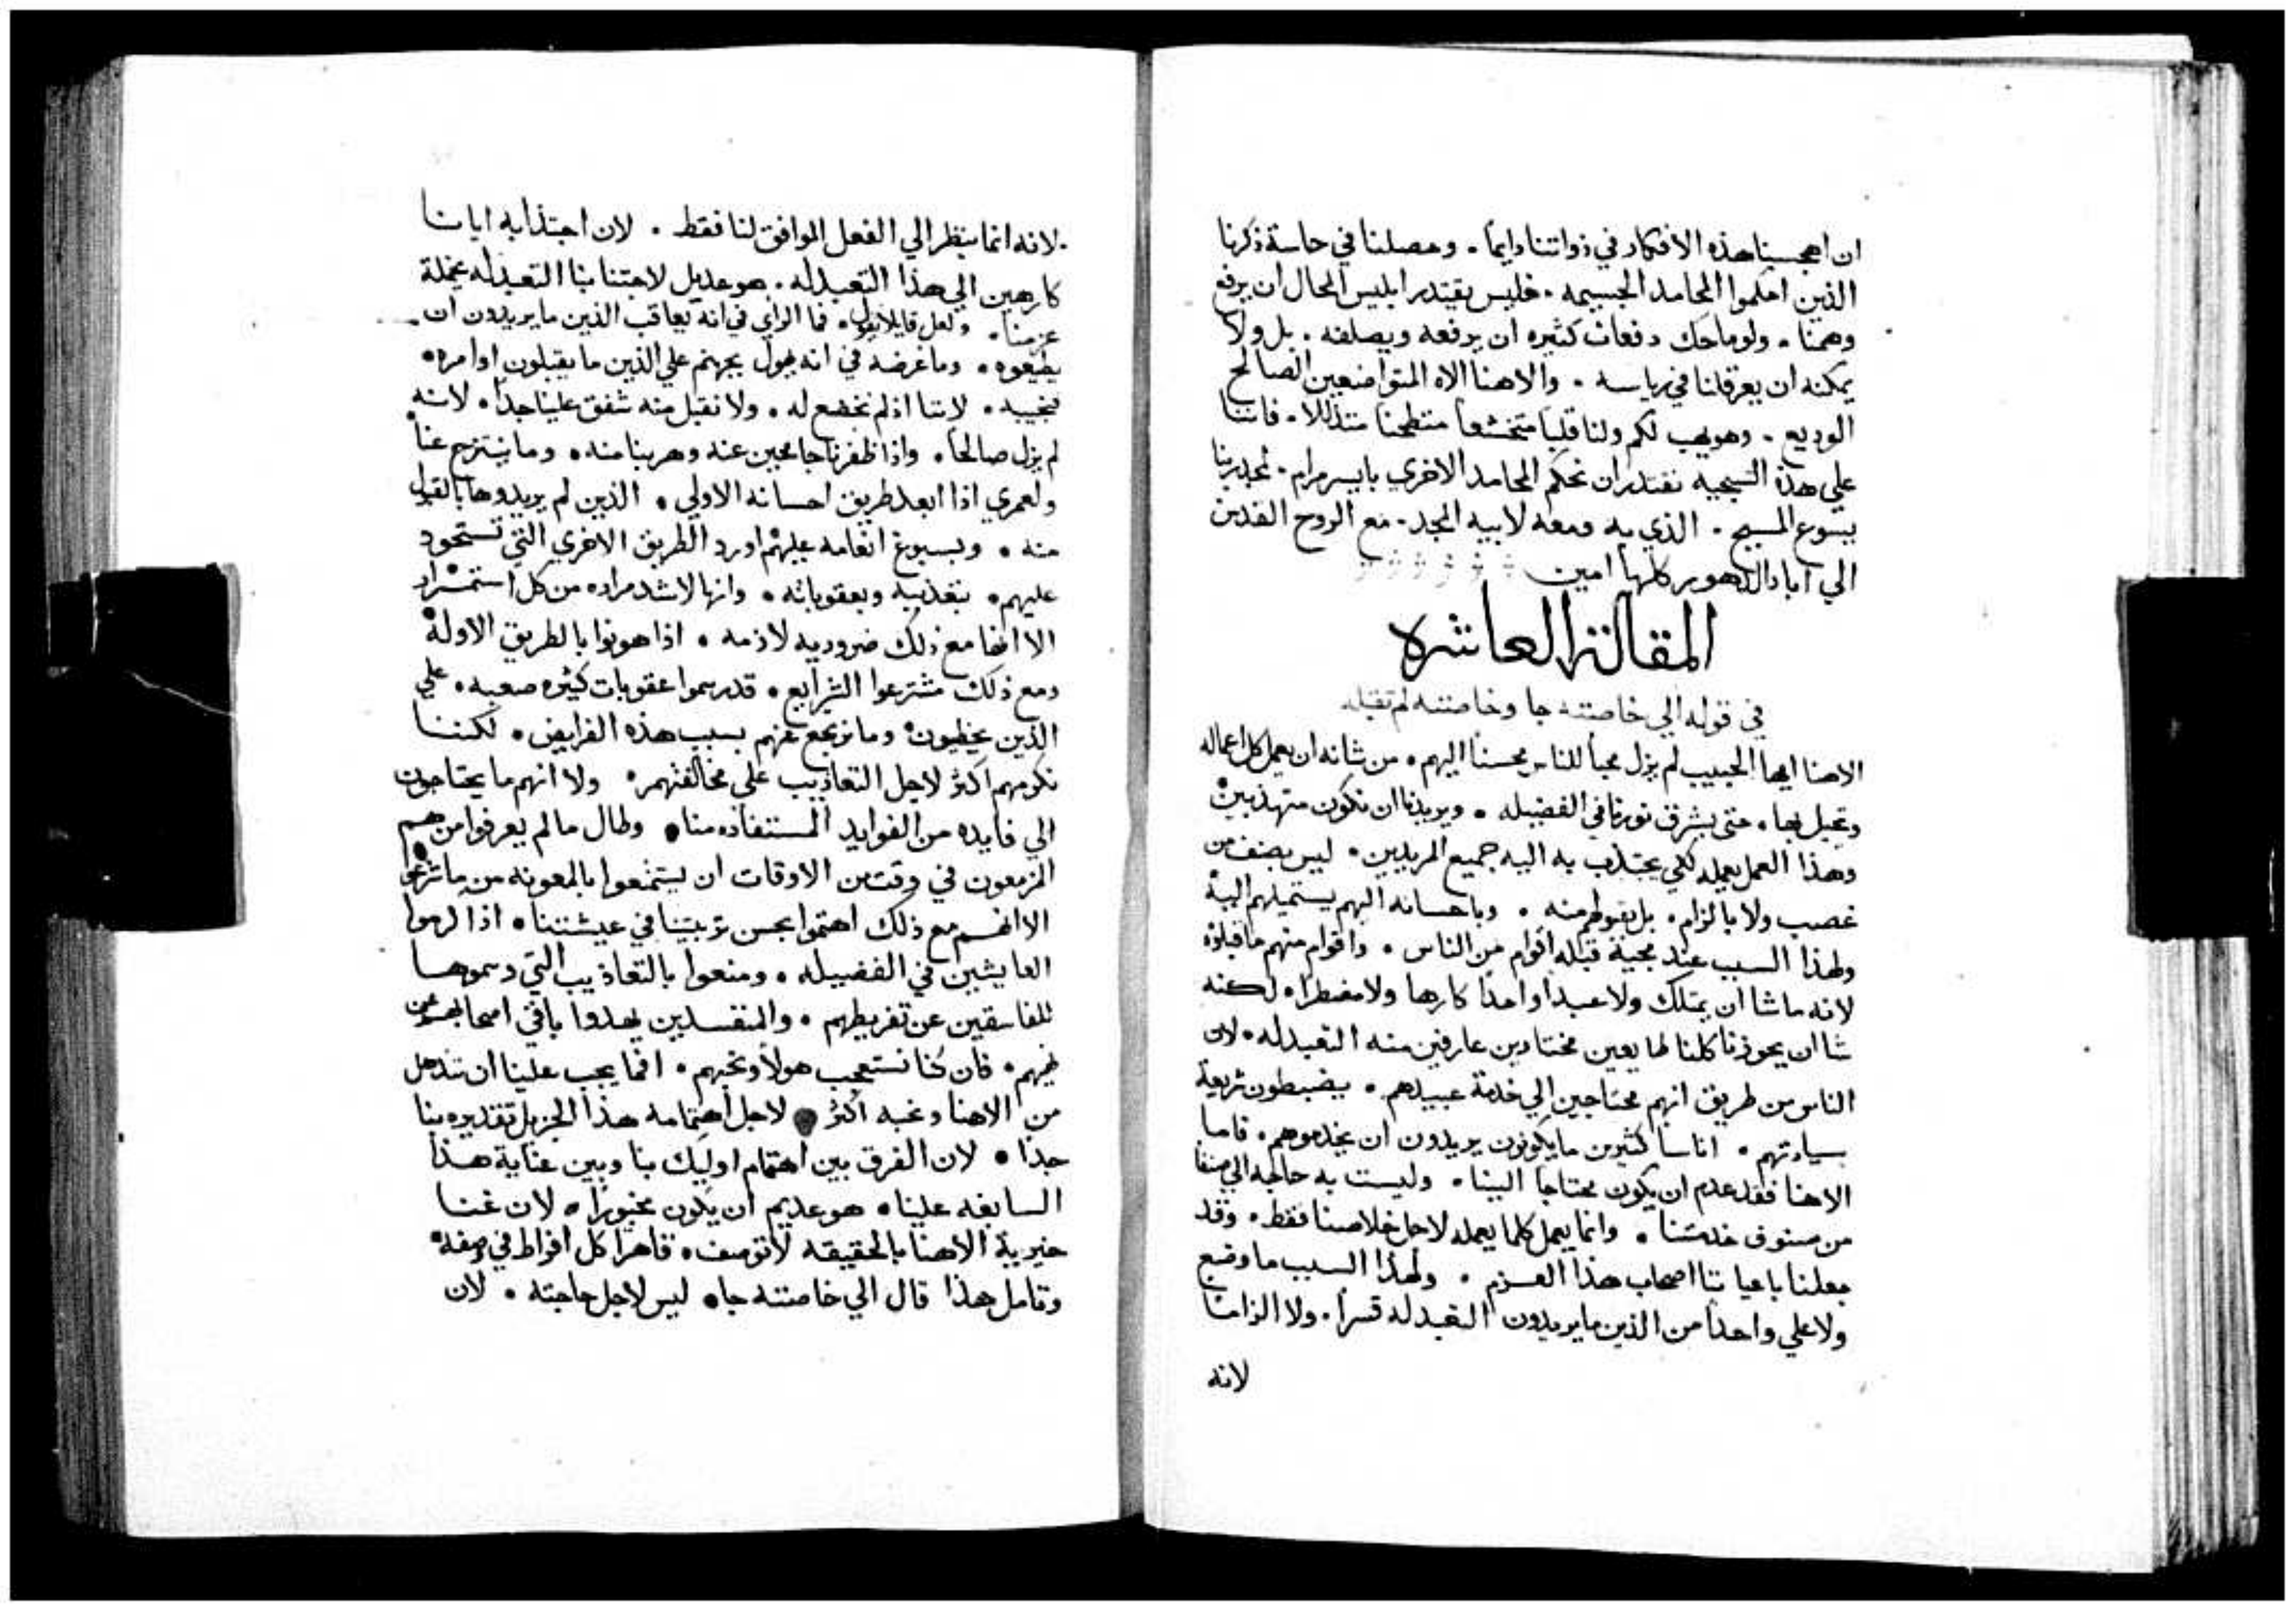 ان اهجسنا هذه الافكار في ذواتنا دايماً . وحصلنا في حاسة ذكرنا
الذين احكموا المحامد الجسيمه . فليس يقتدر ابليس المحال ان يرفع
وهمنا . ولو ماحك دفعات كثيره ان يرفعه ويصلفه . بل ولا
يمكنه ان يعرقلنا في رياسه . والاهنا الاه المتواضعين الصالح
الوديع . وهو يهب لكم ولنا قلباً متخشعاً متطحناً متذللا . فاننا
علي هذه السجيه نقتدر ان نحكم المحامد الاخري بايسر مرام .
يسوع المسيح . الذي به ومعه لابيه المجد . مع الروح القدس
الي اباد الدهور كلها امين
المقالة العاشره
في قوله الي خاصته جا وخاصته لم تقبله
الاهنا ايها الحبيب لم يزل محباً للناس محسناً اليهم . من شانه ان يعمل كل اعماله
ويحيل بها . حتى يشرق نورنا في الفضيله . ويريدنا ان نكون متهذبين
وهذا العمل يعمله لكي يجتذب به اليه جميع المريدين . ليس بصنف من
غصب ولا بالزام . بل بقوله منه . وباحسانه اليهم يستميلهم اليه
ولهذا السبب عند مجيه قبله اقوام من الناس . واقوام منهم ما قبلوه
لانه ما شا ان يمتلك ولا عبداً واحداً كارها ولا مضطرا . لكنه
شا ان يحوذنا كلنا طايعين مختارين عارفين منه التعبد له . لان
الناس من طريق انهم محتاجين الي خدمة عبيدهم . يضبطون بشريعة
سيادتهم . اناساً كثيرين ما يكونون يريدون ان يخدموهم . فاما
الاهنا فقد عدم ان يكون محتاجاً الينا . وليست به حاجه الي صنفا
من صنوف خدمتنا . وانما يعمل كلما يعمله لاجل خلاصنا فقط . وقد
جعلنا باعياننا اصحاب هذا العزم . ولهذا السبب ما وضع
ولا علي واحداً من الذين ما يريدون التعبد له قسراً . ولا الزاماً
لانه
لانه انما ينظر الي الفعل الموافق لنا فقط . لان اجتذابه ايانا
كارهين الي هذا التعبد له . هو عديل لاجتنابنا التعبد له بجملة
عزمنا . ولعل قايلاً يقول . فما الراي في انه يعاقب الذين ما يريدون ان
يطيعوه . وما غرضه في انه يهول بجهنم علي الذين ما يقبلون اوامره .
فنجيبه . لاننا اذ لم نخضع له . ولا نقبل منه شفق علينا جداً . لانه
لم يزل صالحاً . واذا ظفرنا جامحين عنه وهربنا منه . وما ينتزح عنا
ولعمري اذا ابعد طريق احسانه الاولي . الذين لم يريدوها بالقبول
منه . وبسبوغ انعامه عليهم اورد الطريق الاخري التي تستحود
عليهم . بتعذيبه وبعقوباته . وانها لاشد مراره من كل استمرار
الا انها مع ذلك ضروريه لازمه . اذا هونوا بالطريق الاوله
ومع ذلك مشترعوا الشرايع . قد رسموا عقوبات كثيره صعبه . علي
الذين يخطيون وما نرجع عنهم بسبب هذه الفرايض . لكننا
نكرمهم اكثر لاجل التعاذيب علي مخالفتهم . ولا انهم ما يحتاجون
الي فايده من الفوايد المستفاده منا . وطال ما لم يعرفوا من هم
المزمعون في وقت من الاوقات ان يستمتعوا بالمعونه من
الا انهم مع ذلك اهتموا بحسن تربيتنا في عيشتنا . اذ اكرموا
العايشين في الفضيله . ومنعوا بالتعاذيب التي رسموها
للفاسقين عن تفريطهم . والمنفسدين يهدوا باقي اصحابهم عن
غيهم . فان كنا نستعجب هولا ونحبهم . افما يجب علينا ان نتدهل
من الاهنا ونحبه اكثر . لاجل اهتمامه هذا الجزيل تقديره بنا
جداً . لان الفرق بين اهتمام اوليك بنا وبين عناية هذا
السابغه علينا . هو عديم ان يكون مخبوراً . لان غنا
خيرية الاهنا بالحقيقه لا توصف . قاهراً كل افراط في وصفه
وتامل هذا قال الي خاصته جا . ليس لاجل حاجته . لان